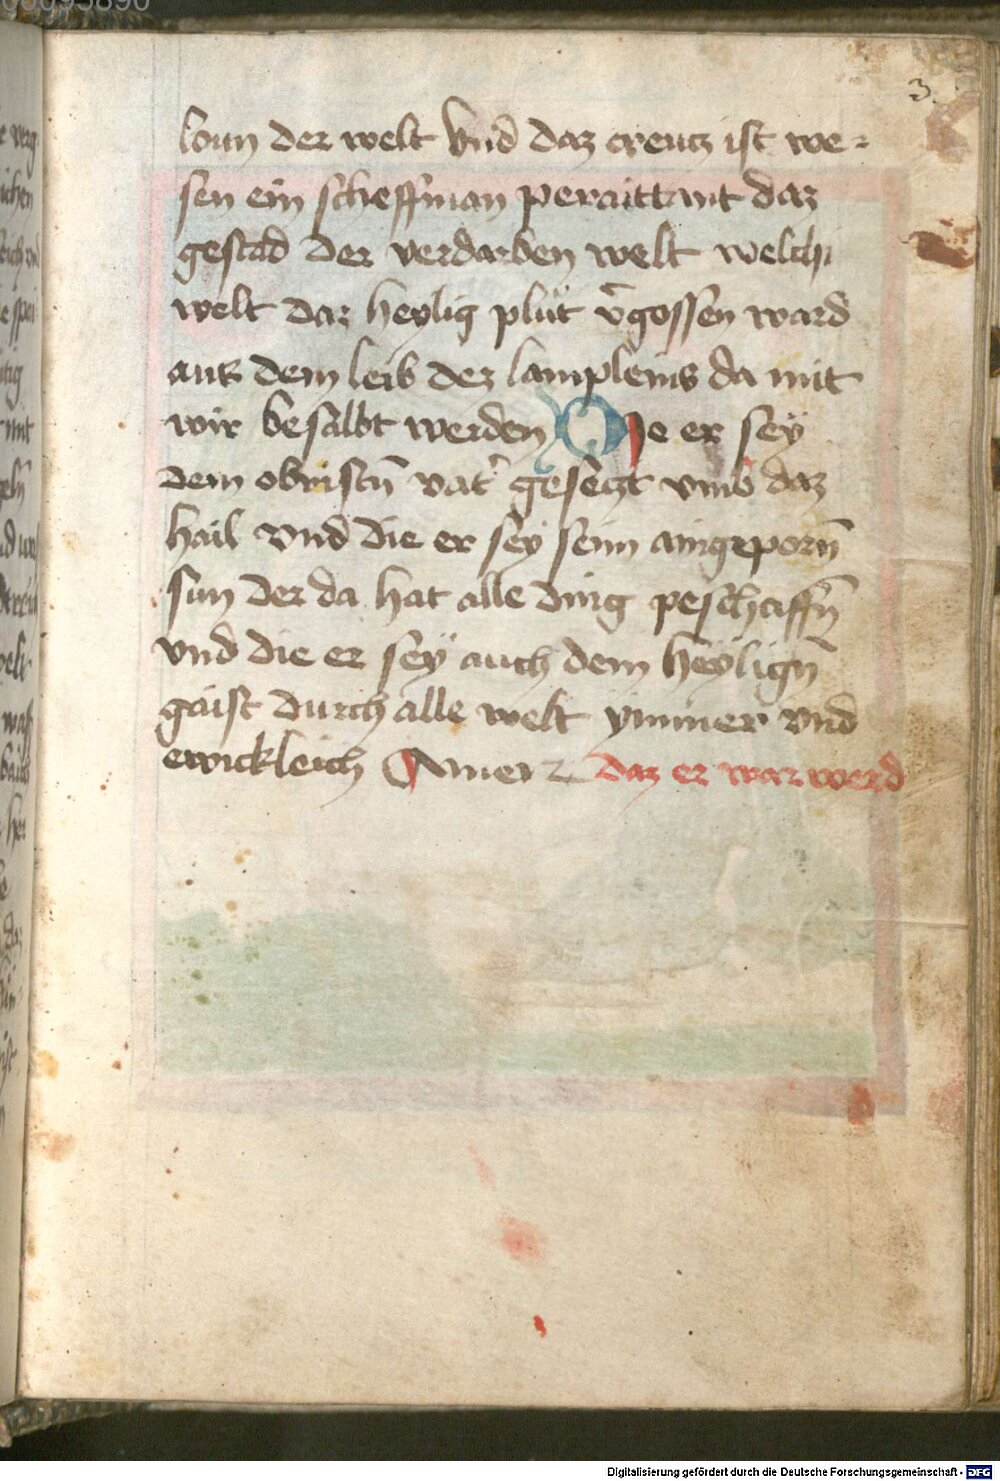 3
loun der welt vnd daz creutz ist we-
sen ein scheffman peraittmit daz
gestad der verdarben welt welch
welt daz heylig plut v̄gossen ward
aus dem leib dez lampleins da mit
wir besalbt werden Die er sey
dem obristn̄ vat' gesetzt vmb daz
hail vnd die er sey seim aingeporn̄
sun der da hat alle ding peschaffn̄
vnd die er sey auch dem heylign̄
gaist durch alle welt ymmer vnd
ewickleich Amen daz er war werd
Digitalisierung gefördert durch die Deutsche Forschungsgemeinschaft - DFG